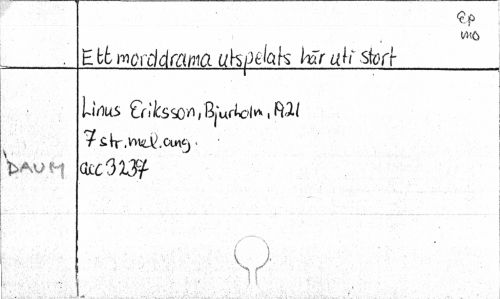 Ep
mo
Ett morddrama utspelats här uti stort
Linus Eriksson, Bjurholm, 1921
7 str. mel. ang.
DAUM acc 3237